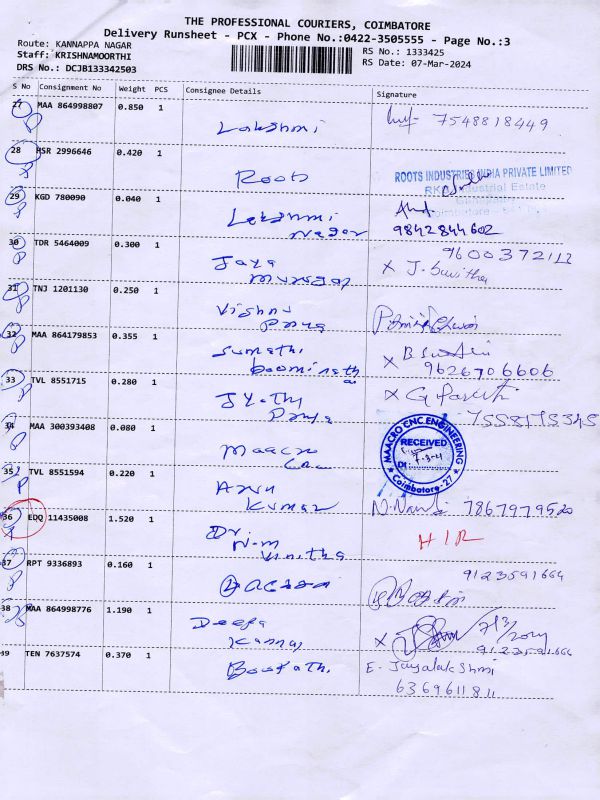 THE PROFESSIONAL COURIERS, COIMBATORE
Delivery Runsheet - PCX - Phone No.:0422-3505555 - Page No.:3
Route: KANNAPPA NAGAR
Staff: KRISHNAMOORTHI
DRS No.: DCJB133342503
RS No.: 1333425
RS Date: 07-Mar-2024
S No Consignment No Weight PCS Consignee Details Signature
27 MAA 864998807 0.850 1 Lakshmi 7548818449
28 RSR 2996646 0.420 1 Roots
ROOTS INDUSTRIES INDIA PRIVATE LIMITED
Industrial Estate
29 KGD 780090 0.040 1 Lakshmi
Nagar 9842844602
30 TDR 5464009 0.300 1 Jaya
Murugar
X J. Savitha
31 TNJ 1201130 0.250 1 Vishnu
Priya
32 MAA 864179853 0.355 1 Sumathi
Boominatha
X B
9626706606
33 TVL 8551715 0.280 1 Jyothy
Priya
X G
34 MAA 300393408 0.080 1 Maacro
MAACRO CNC ENGINEERING
RECEIVED
Dt
Coimbatore - 27
35 TVL 8551594 0.220 1 Arun
Kumar 7867979520
36 EDQ 11435008 1.520 1 Dr
Vinitha
37 RPT 9336893 0.160 1
9123591664
38 MAA 864998776 1.190 1 Deepa
Kannan
X 7/3/2024
9123591664
39 TEN 7637574 0.370 1 Boopathi
E. Jayalakshmi
6369611811